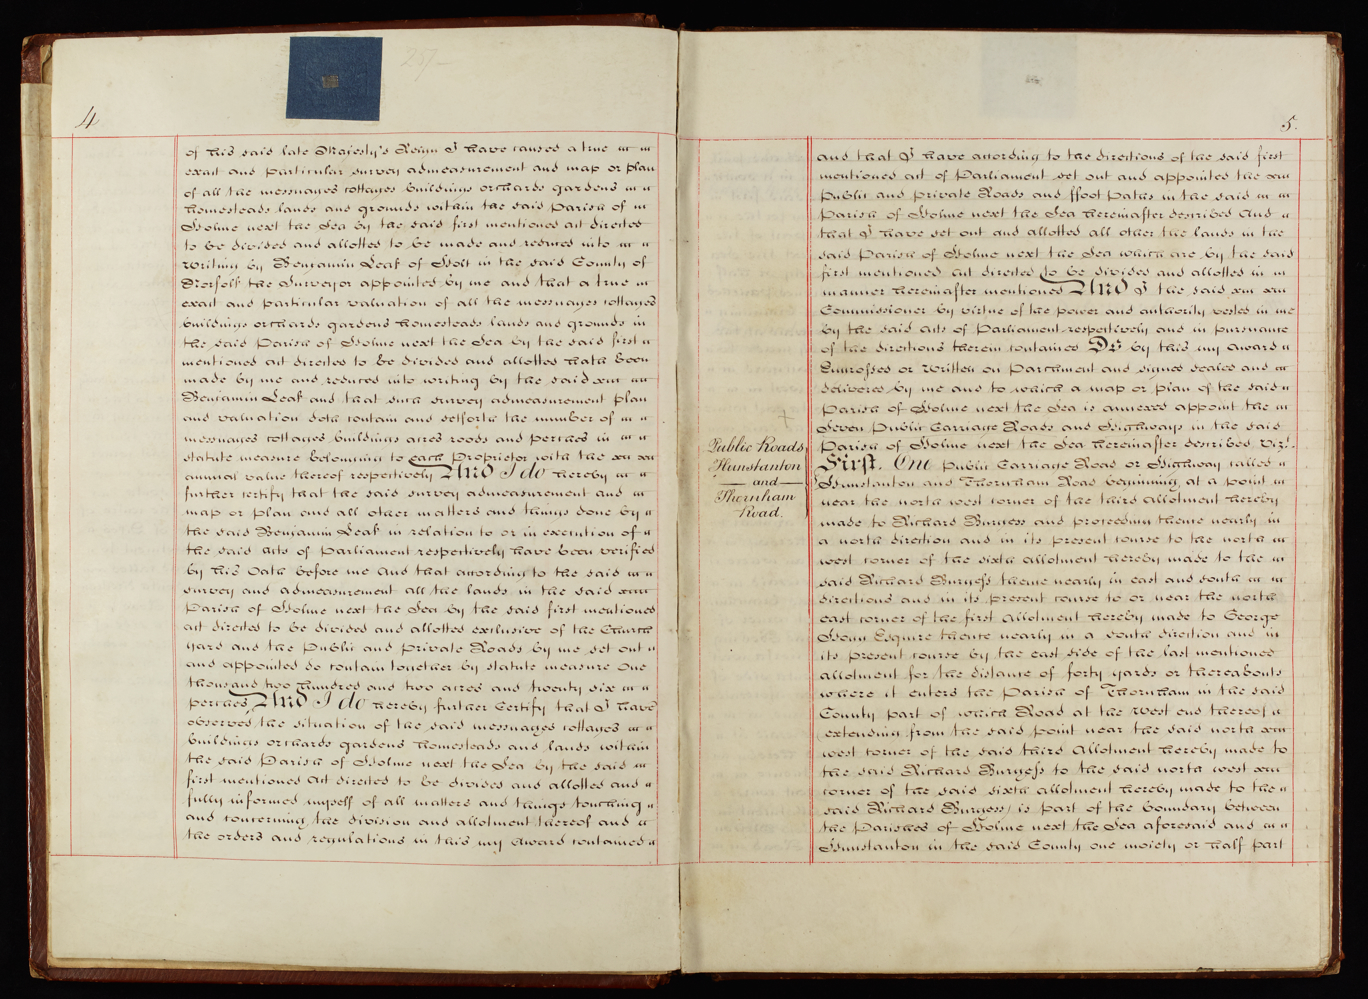 4
of his said late Majesty's Reign I have caused a true
exact and particular survey admeasurement and map or plan
of all the messuages cottages buildings orchards gardens
homesteads lands and grounds within the said Parish of
Holme next the Sea by the said first mentioned act directed
to be divided and allotted to be made and reduced into
writing by Benjamin Leak of Holt in the said County of
Norfolk the Surveyor appointed by me and that a true
exact and particular valuation of all the messuages cottages
buildings orchards gardens homesteads lands and grounds in
the said Parish of Holme next the Sea by the said first
mentioned act directed to be divided and allotted hath been
made by me and reduced into writing by the said
Benjamin Leak and that such survey admeasurement plan
and valuation doth contain and setforth the number of
messuages cottages buildings acres roods and perches in
statute measure belonging to each Proprietor with the
annual value thereof respectively And I do hereby
further certify that the said survey admeasurement and
map or plan and all other matters and things done by
the said Benjamin Leak in relation to or in execution of
the said acts of Parliament respectively have been verified
by his Oath before me And that according to the said
survey and admeasurement all the lands in the said
Parish of Holme next the Sea by the said first mentioned
act directed to be divided and allotted exclusive of the Church
yard and the Public and private Roads by me set out
and appointed do contain together by statute measure One
thousand two hundred and two acres and twenty six
perches And I do hereby further Certify that I have
observed the situation of the said messuages cottages
buildings orchards gardens homesteads and lands within
the said Parish of Holme next the Sea by the said
first mentioned Act directed to be divided and allotted and
fully informed myself of all matters and things touching
and concerning the division and allotment thereof and
the orders and regulations in this my Award contained
5.
and that I have according to the directions of the said first
mentioned act of Parliament set out and appointed the
Public and private Roads and ffoot Paths in the said
Parish of Holme next the Sea hereinafter described And
that I have set out and allotted all other the lands in the
said Parish of Holme next the Sea which are by the said
first mentioned act directed to be divided and allotted in
manner hereinafter mentioned And I the said
Commissioner by virtue of the power and authority vested in me
by the said acts of Parliament respectively and in pursuance
of the directions therein contained Do by this my Award
Engrossed or Written on Parchment and signed sealed and
delivered by me and to which a map or plan of the said
Parish of Holme next the Sea is annexed appoint the
Seven Public Carriage Roads and Highways in the said
Parish of Holme next the Sea hereinafter described Vizt.
Public Roads
Hunstanton
and
Thornham
Road.
First. One Public Carriage Road or Highway called
Hunstanton and Thornham Road beginning at a point
near the north west corner of the third allotment hereby
made to Richard Burgess and proceeding thence nearly in
a north direction and in its present course to the north
west corner of the sixth allotment hereby made to the
said Richard Burgess thence nearly in east and south
directions and in its present course to or near the north
east corner of the first allotment hereby made to George
Hogg Esquire thence nearly in a south direction and in
its present course by the east side of the last mentioned
allotment for the distance of forty yards or thereabouts
where it enters the Parish of Thornham in the said
County part of which Road at the West end thereof
(extending from the said point near the said north
west corner of the said third Allotment hereby made to
the said Richard Burgess to the said north west
corner of the said sixth allotment hereby made to the
said Richard Burgess) is part of the boundary between
the Parishes of Holme next the Sea aforesaid and
Hunstanton in the said County one moiety or half part